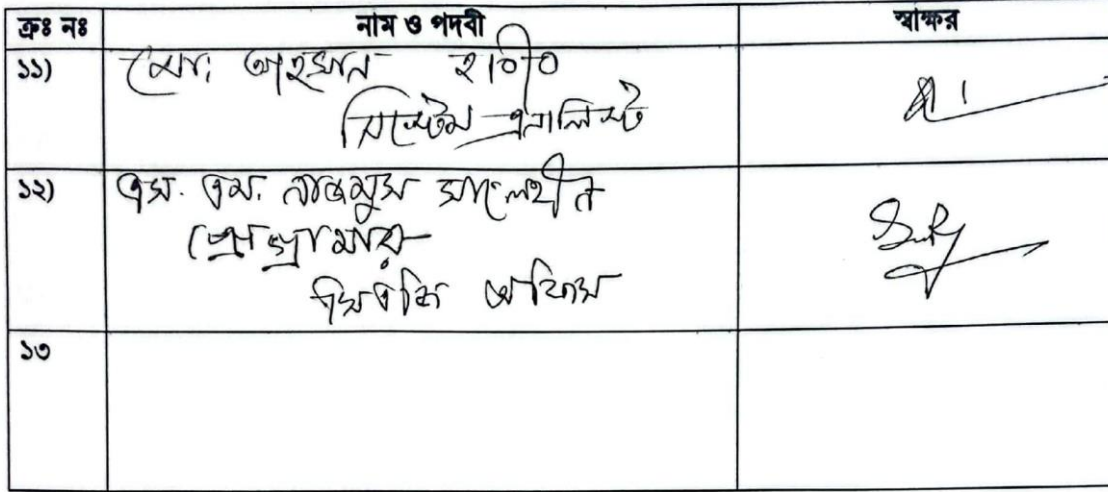 ক্রঃ নঃ নাম ও পদবী স্বাক্ষর
১১) মো: আহসান হাবীব
সিস্টেম এনালিস্ট
১২) এস. এম. নাজমুস সালেহীন
প্রোগ্রামার
অফিস
১৩